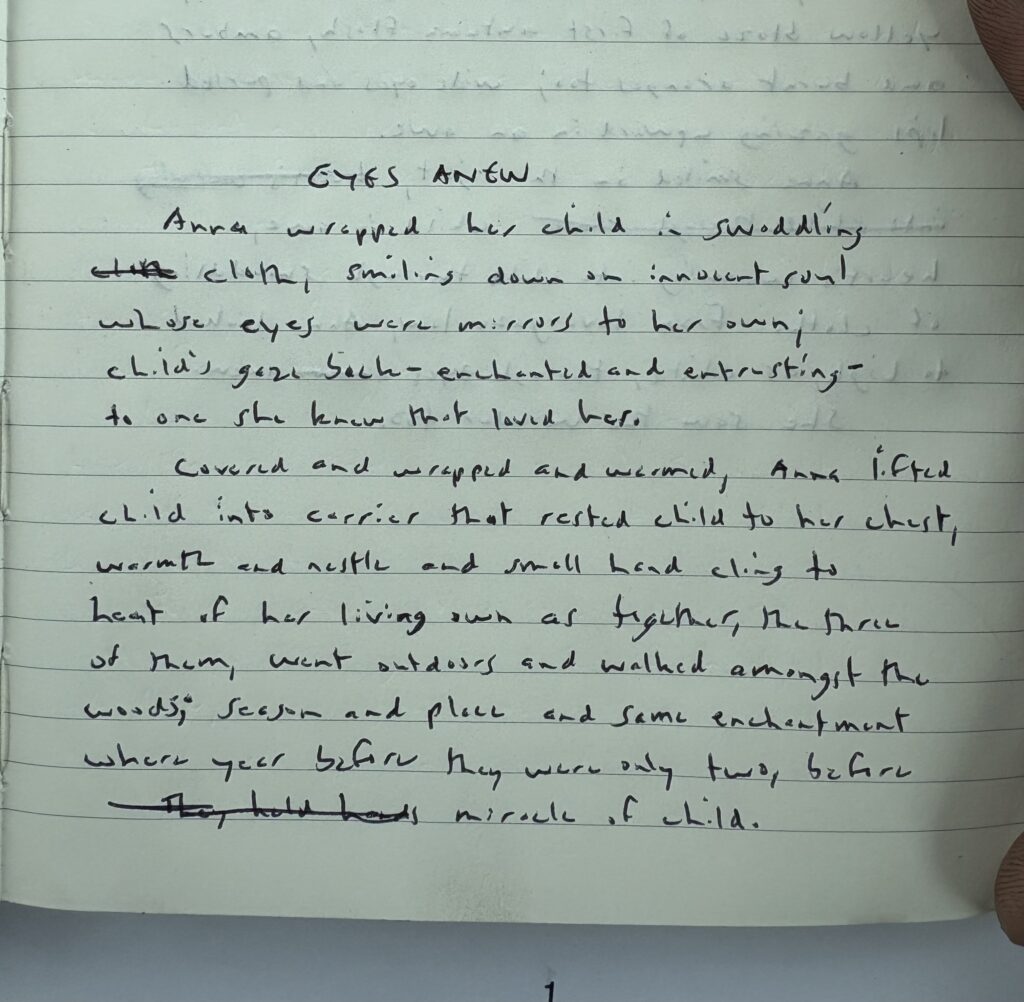 EYES ANEW
Anna wrapped her child in swaddling
cloth, smiling down on innocent soul
whose eyes were mirrors to her own;
child's gaze back - enchanted and entrusting -
to one she knew that loved her.
Covered and wrapped and warmed, Anna lifted
child into carrier that rested child to her chest,
warmth and nestle and small hand cling to
heat of her living own as together, the three
of them, went outdoors and walked amongst the
woods; season and place and same enchantment
where year before they were only two, before
They hold hands miracle of child.
1